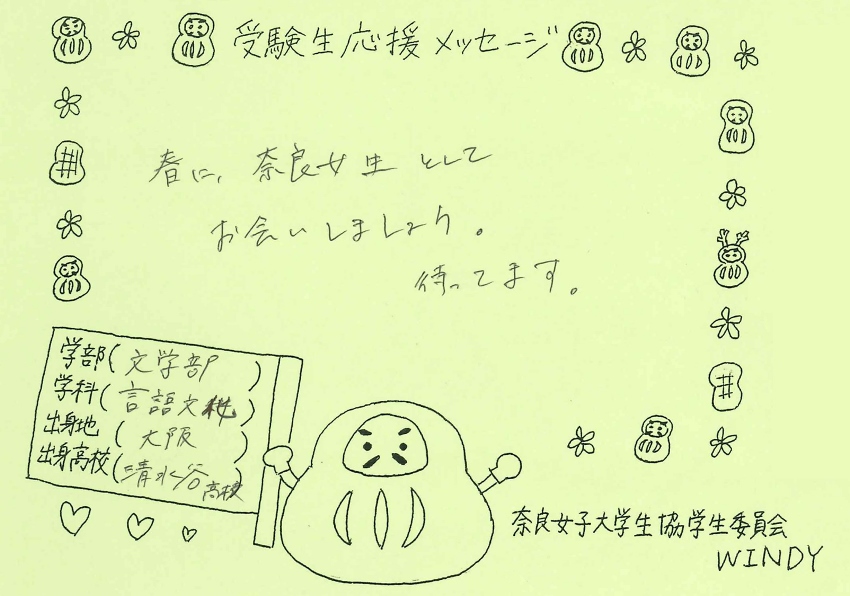 受験生応援メッセージ
春に、奈良女生として
お会いしましょう。
待ってます。
学部(文学部)
学科(言語文化)
出身地(大阪)
出身高校(清水谷高校)
奈良女子大学生協学生委員会
WINDY